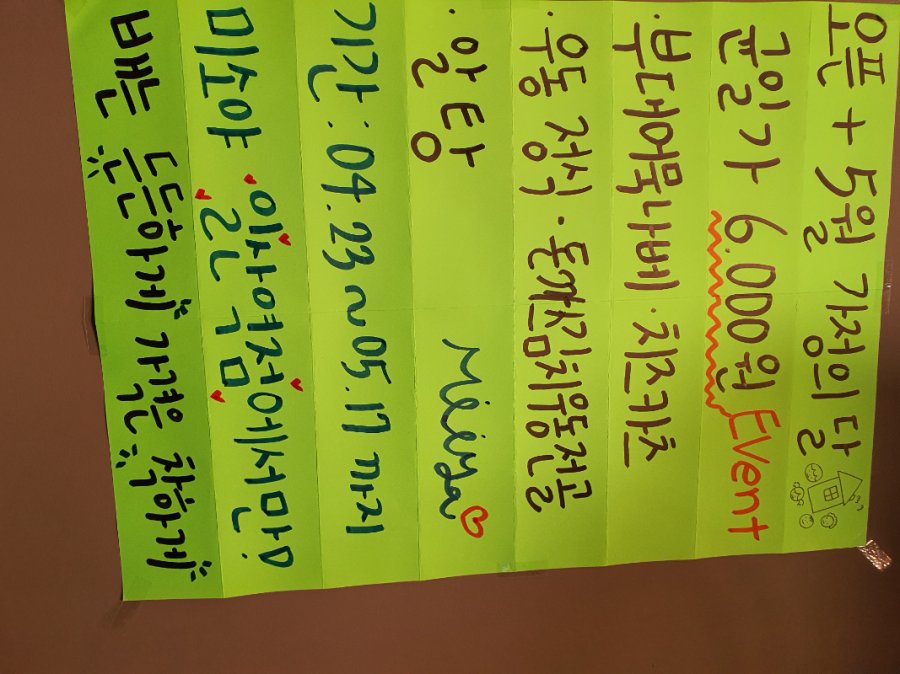 오픈 + 5월 가정의 달
균일가 6.000원 Event
·부대어묵나베 ·치즈카츠
·우동 정식 ·돈까스김치우동전골
·알탕 Misoya♡
기간 : 04. 23 ~ 05. 17 까지
미소야 일산역점에서만!
배는 든든하게 가격은 착하게